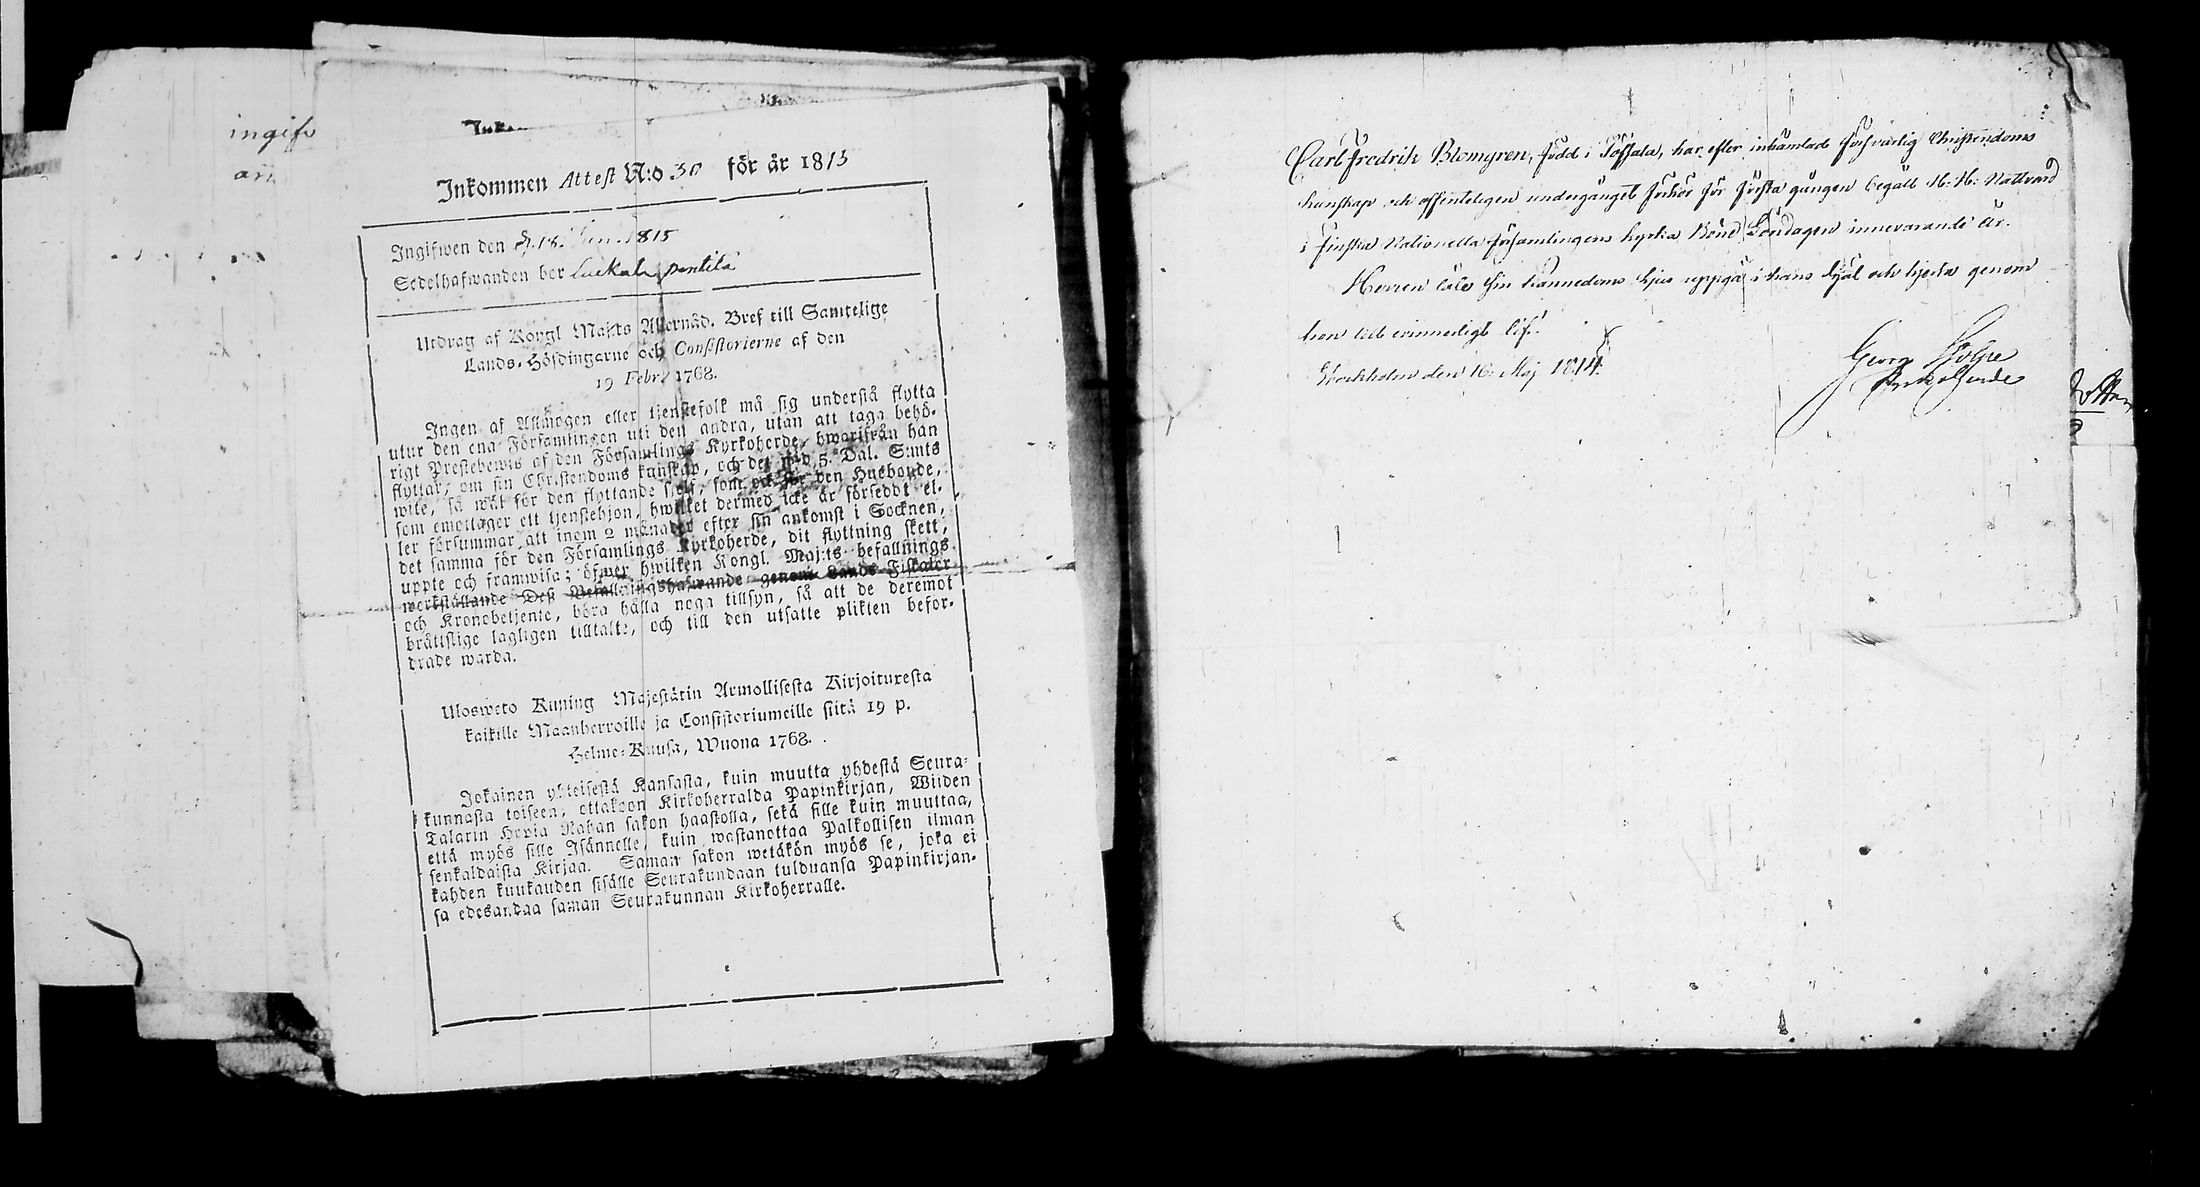 ingifv
an
Inkommen Attest N:o 30 för år 1815
Ingifwen den d. 18. Jun. 1815
Sedelhafwanden bor Luckala pentilä
Utdrag af Kongl Maj:ts Allernåd. Bref till Samtelige
Lands-Höfdingarne och Consistorierne af den
19 Febr. 1768.
Ingen af Allmogen eller tjenstefolk må sig understå flytta
utur den ena Församlingen uti den andra, utan att taga behö-
rigt Prestebewis af den Församlings Kyrkoherde, hwarifrån han
flyttar, om sin Christendoms kunskap, och det wid 5. Dal. S:mts
wite, så wäl för den flyttande sjelf, som ock för den Husbonde,
som emottager ett tjenstehjon, hwilket dermed icke är försedt el-
ler försummar att inom 2 månader efter sin ankomst i Socknen,
det samma för den Församlings Kyrkoherde, dit flyttning skett,
uppte och framwisa; öfwer hwilken Kongl. Maj:ts befallnings
werkställande Dess Befallningshafwande genom Lands-Fiskaler
och Kronobetjente, böra hålla noga tillsyn, så att de deremot
bråttslige lagligen tilltalte, och till den utsatte plikten befor-
drade warda.
Ulosweto Kuning Majestätin Armollisesta Kirjoituresta
kaikille Maanherroille ja Consistoriumeille siitä 19 p.
Helme-Kuusa, Wuona 1768.
Jokainen yhteisestä Kansasta, kuin muutta yhdestä Seura-
kunnasta toiseen, ottakoon Kirkoherralda Papinkirjan, Wiiden
Talarin Hopia Rahan sakon haastolla, sekä sille kuin muuttaa,
että myös sille Isännelle, kuin wastanottaa Palkollisen ilman
senkaldaista Kirjaa. Saman sakon wetäkön myös se, joka ei
kahden kuukauden sisälle Seurakundaan tulduansa Papinkirjan-
sa edesandaa saman Seurakunnan Kirkoherralle.
Carl Fredrik Blomgren, född i Töfsala, har efter inhämtad försvarlig Christendoms
kunskap och offenteligen undergånget förhör för första gången begått H: H: Nattvard
i Finska Nationella Församlingens kyrka Bönd Söndagen innevarande år.
Herren låte sin kännedoms ljus uppgå i hans själ och hjerta genom
hen till evinnerligt lif!
Stockholm den 16. Maj 1814.
Georg
Kyrkoherde